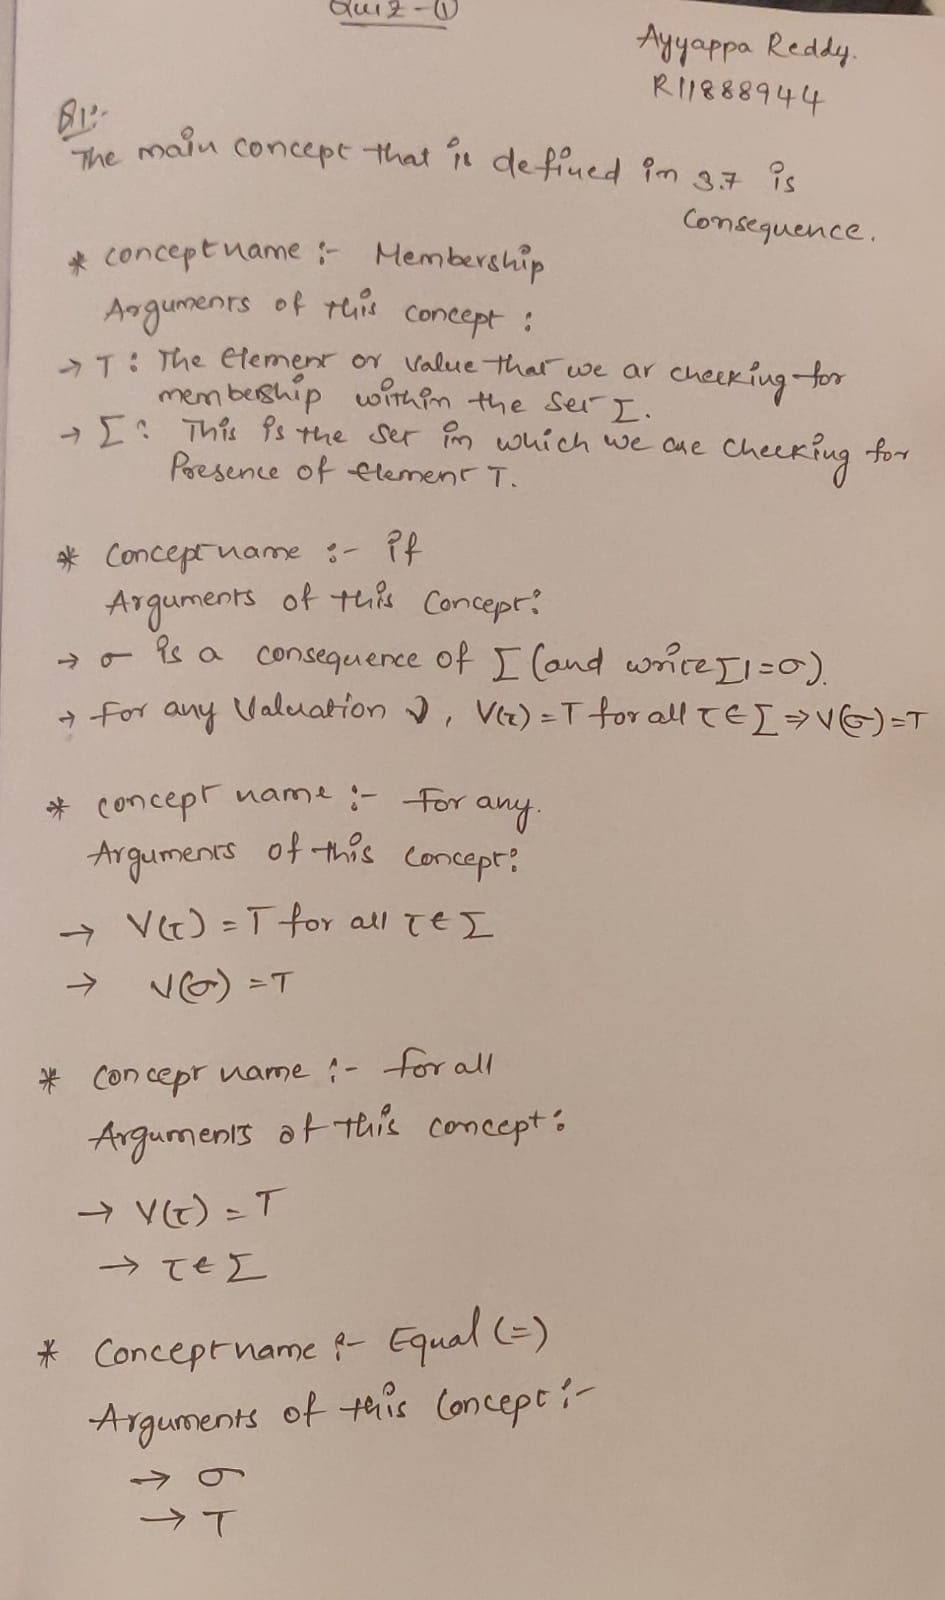 Quiz-①
Ayyappa Reddy.
R11888944
Q1:-
The main concept that is defined in 3.7 is
Consequence.
* concept name :- Membership
Arguments of this concept :
→ T : The Element or value that we ar checking for
membership within the set Σ.
→ Σ : This is the set in which we are checking for
Presence of element T.
* Concept name :- if
Arguments of this Concept:
→ σ is a consequence of Σ (and write Σ|=σ).
→ for any Valuation v, V(τ) = T for all τ ∈ Σ ⇒ V(σ)=T
* concept name :- for any.
Arguments of this concept:
→ V(τ) = T for all τ ∈ Σ
→ V(σ) = T
* concept name :- for all
Arguments of this concept:
→ V(τ) = T
→ τ ∈ Σ
* Concept name :- Equal (=)
Arguments of this Concept :-
→ σ
→ T